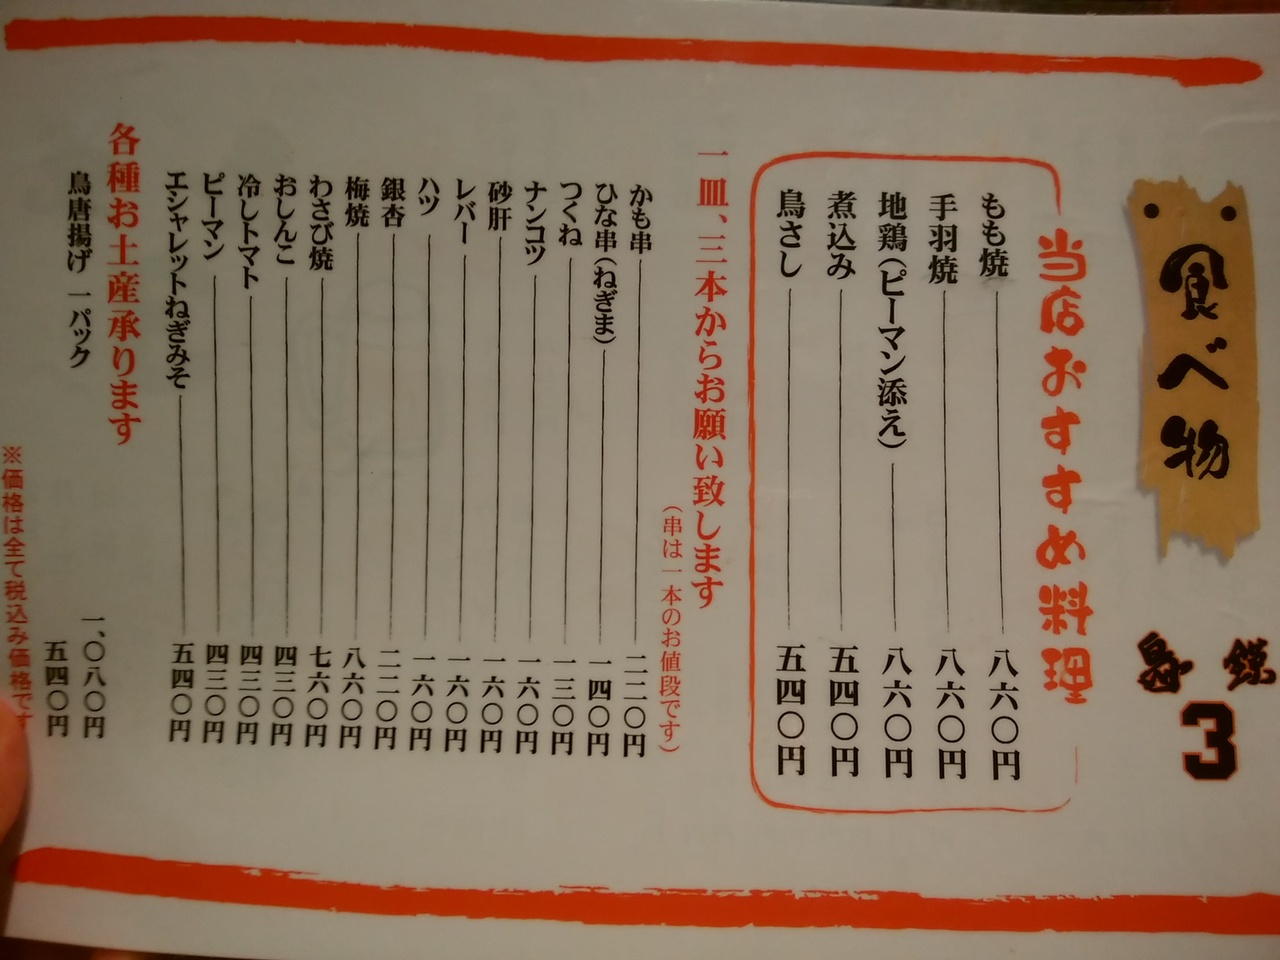 食べ物
3
当店おすすめ料理
もも焼 八六〇円
手羽焼 八六〇円
地鶏(ピーマン添え) 八六〇円
煮込み 五四〇円
鳥さし 五四〇円
一皿、三本からお願い致します
(串は一本のお値段です)
かも串 二二〇円
ひな串(ねぎま) 一四〇円
つくね 一三〇円
ナンコツ 一六〇円
砂肝 一六〇円
レバー 一六〇円
ハツ 一六〇円
銀杏 二二〇円
梅焼 八六〇円
わさび焼 七六〇円
おしんこ 四三〇円
冷しトマト 四三〇円
ピーマン 四三〇円
エシャレットねぎみそ 五四〇円
各種お土産承ります
一、〇八〇円
鳥唐揚げ 一パック
五四〇円
※価格は全て税込み価格です